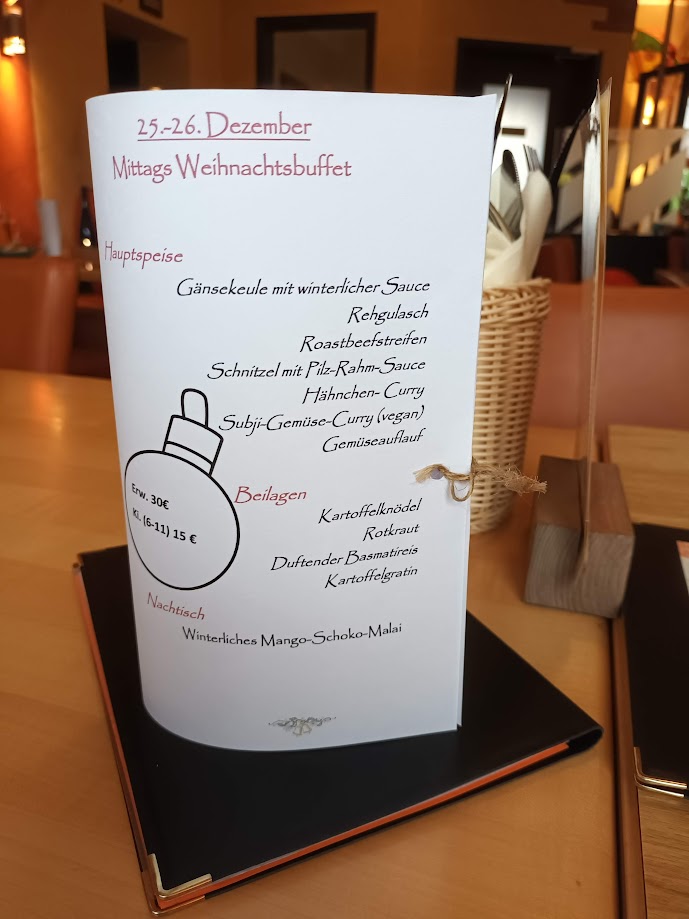 25.-26. Dezember
Mittags Weihnachtsbuffet
Hauptspeise
Gänsekeule mit winterlicher Sauce
Rehgulasch
Roastbeefstreifen
Schnitzel mit Pilz-Rahm-Sauce
Hähnchen- Curry
Subji-Gemüse-Curry (vegan)
Gemüseauflauf
Erw. 30€
Ki. (6-11) 15 €
Beilagen
Kartoffelknödel
Rotkraut
Duftender Basmatireis
Kartoffelgratin
Nachtisch
Winterliches Mango-Schoko-Malai